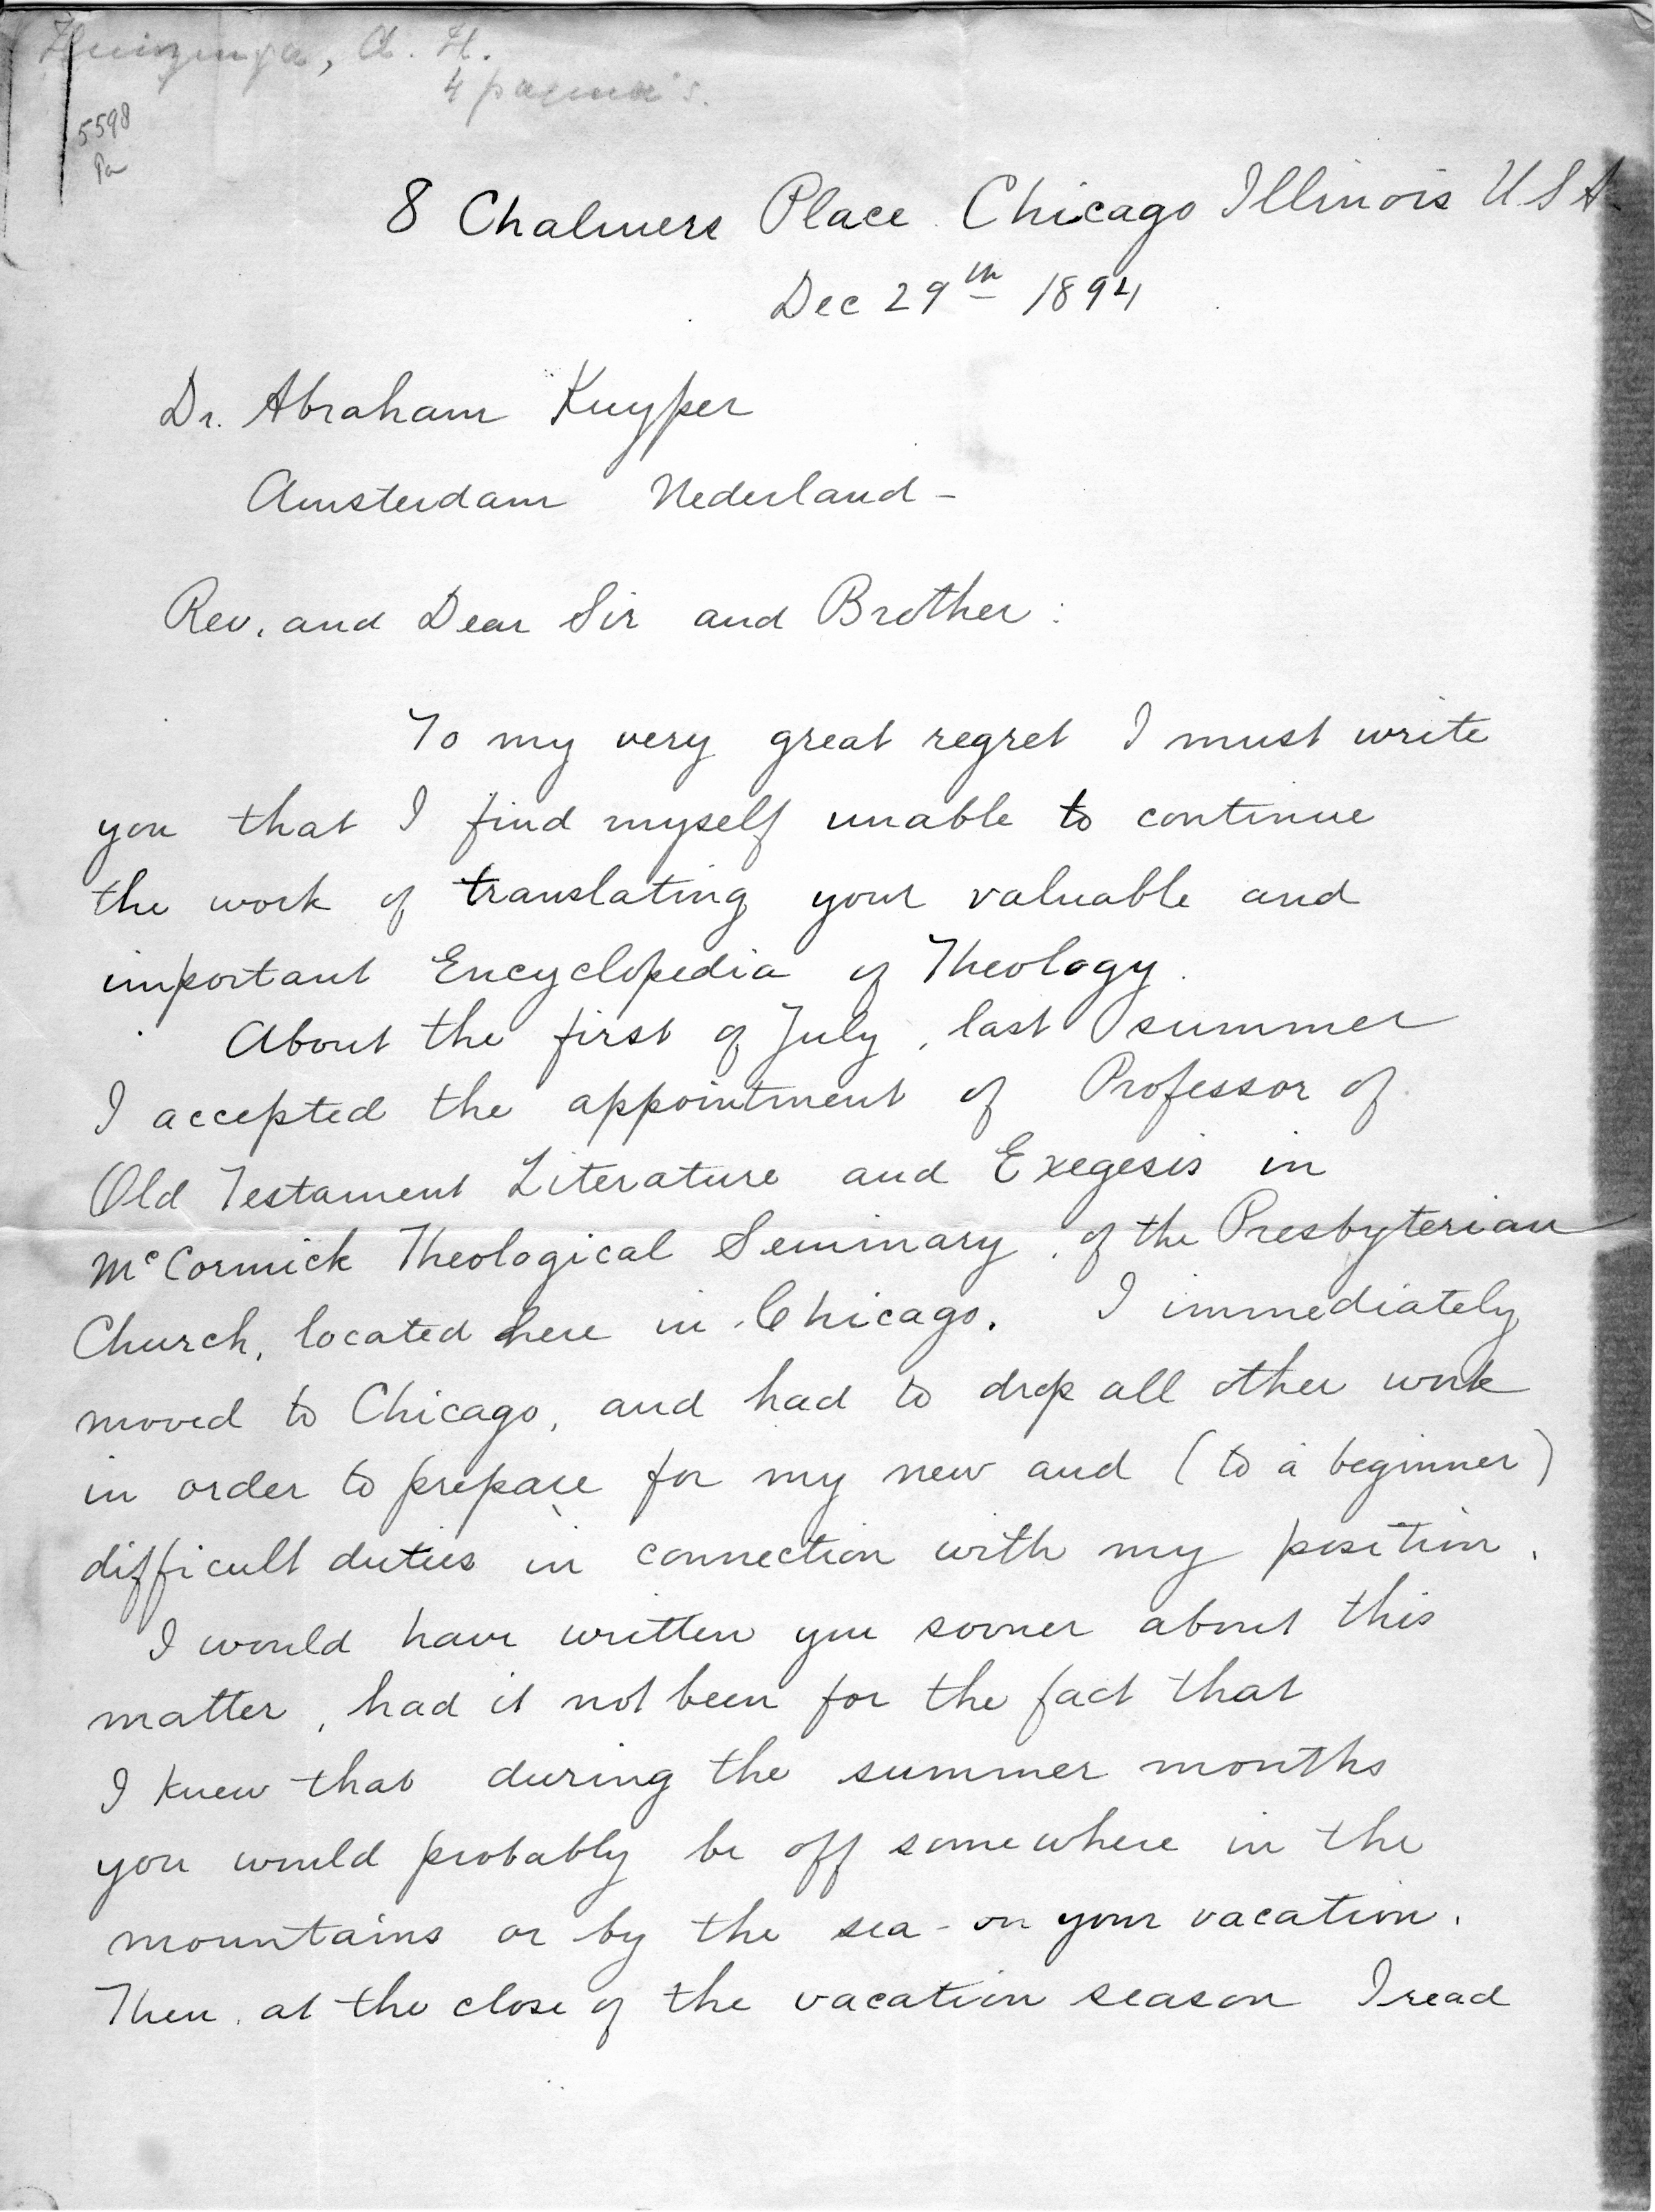 Huizinga, A. H.
4 pagina's.
5598
8 Chalmers Place Chicago Illinois U S A
Dec 29th 1894
Dr. Abraham Kuyper
Amsterdam Nederland -
Rev. and Dear Sir and Brother:
To my very great regret I must write
you that I find myself unable to continue
the work of translating your valuable and
important Encyclopedia of Theology.
About the first of July, last summer
I accepted the appointment of Professor of
Old Testament Literature and Exegesis in
McCormick Theological Seminary, of the Presbyterian
Church, located here in Chicago. I immediately
moved to Chicago, and had to drop all other work
in order to prepare for my new and (to a beginner)
difficult duties in connection with my position.
I would have written you sooner about this
matter, had it not been for the fact that
I knew that during the summer months
you would probably be off somewhere in the
mountains or by the sea - on your vacation.
Then, at the close of the vacation season I read